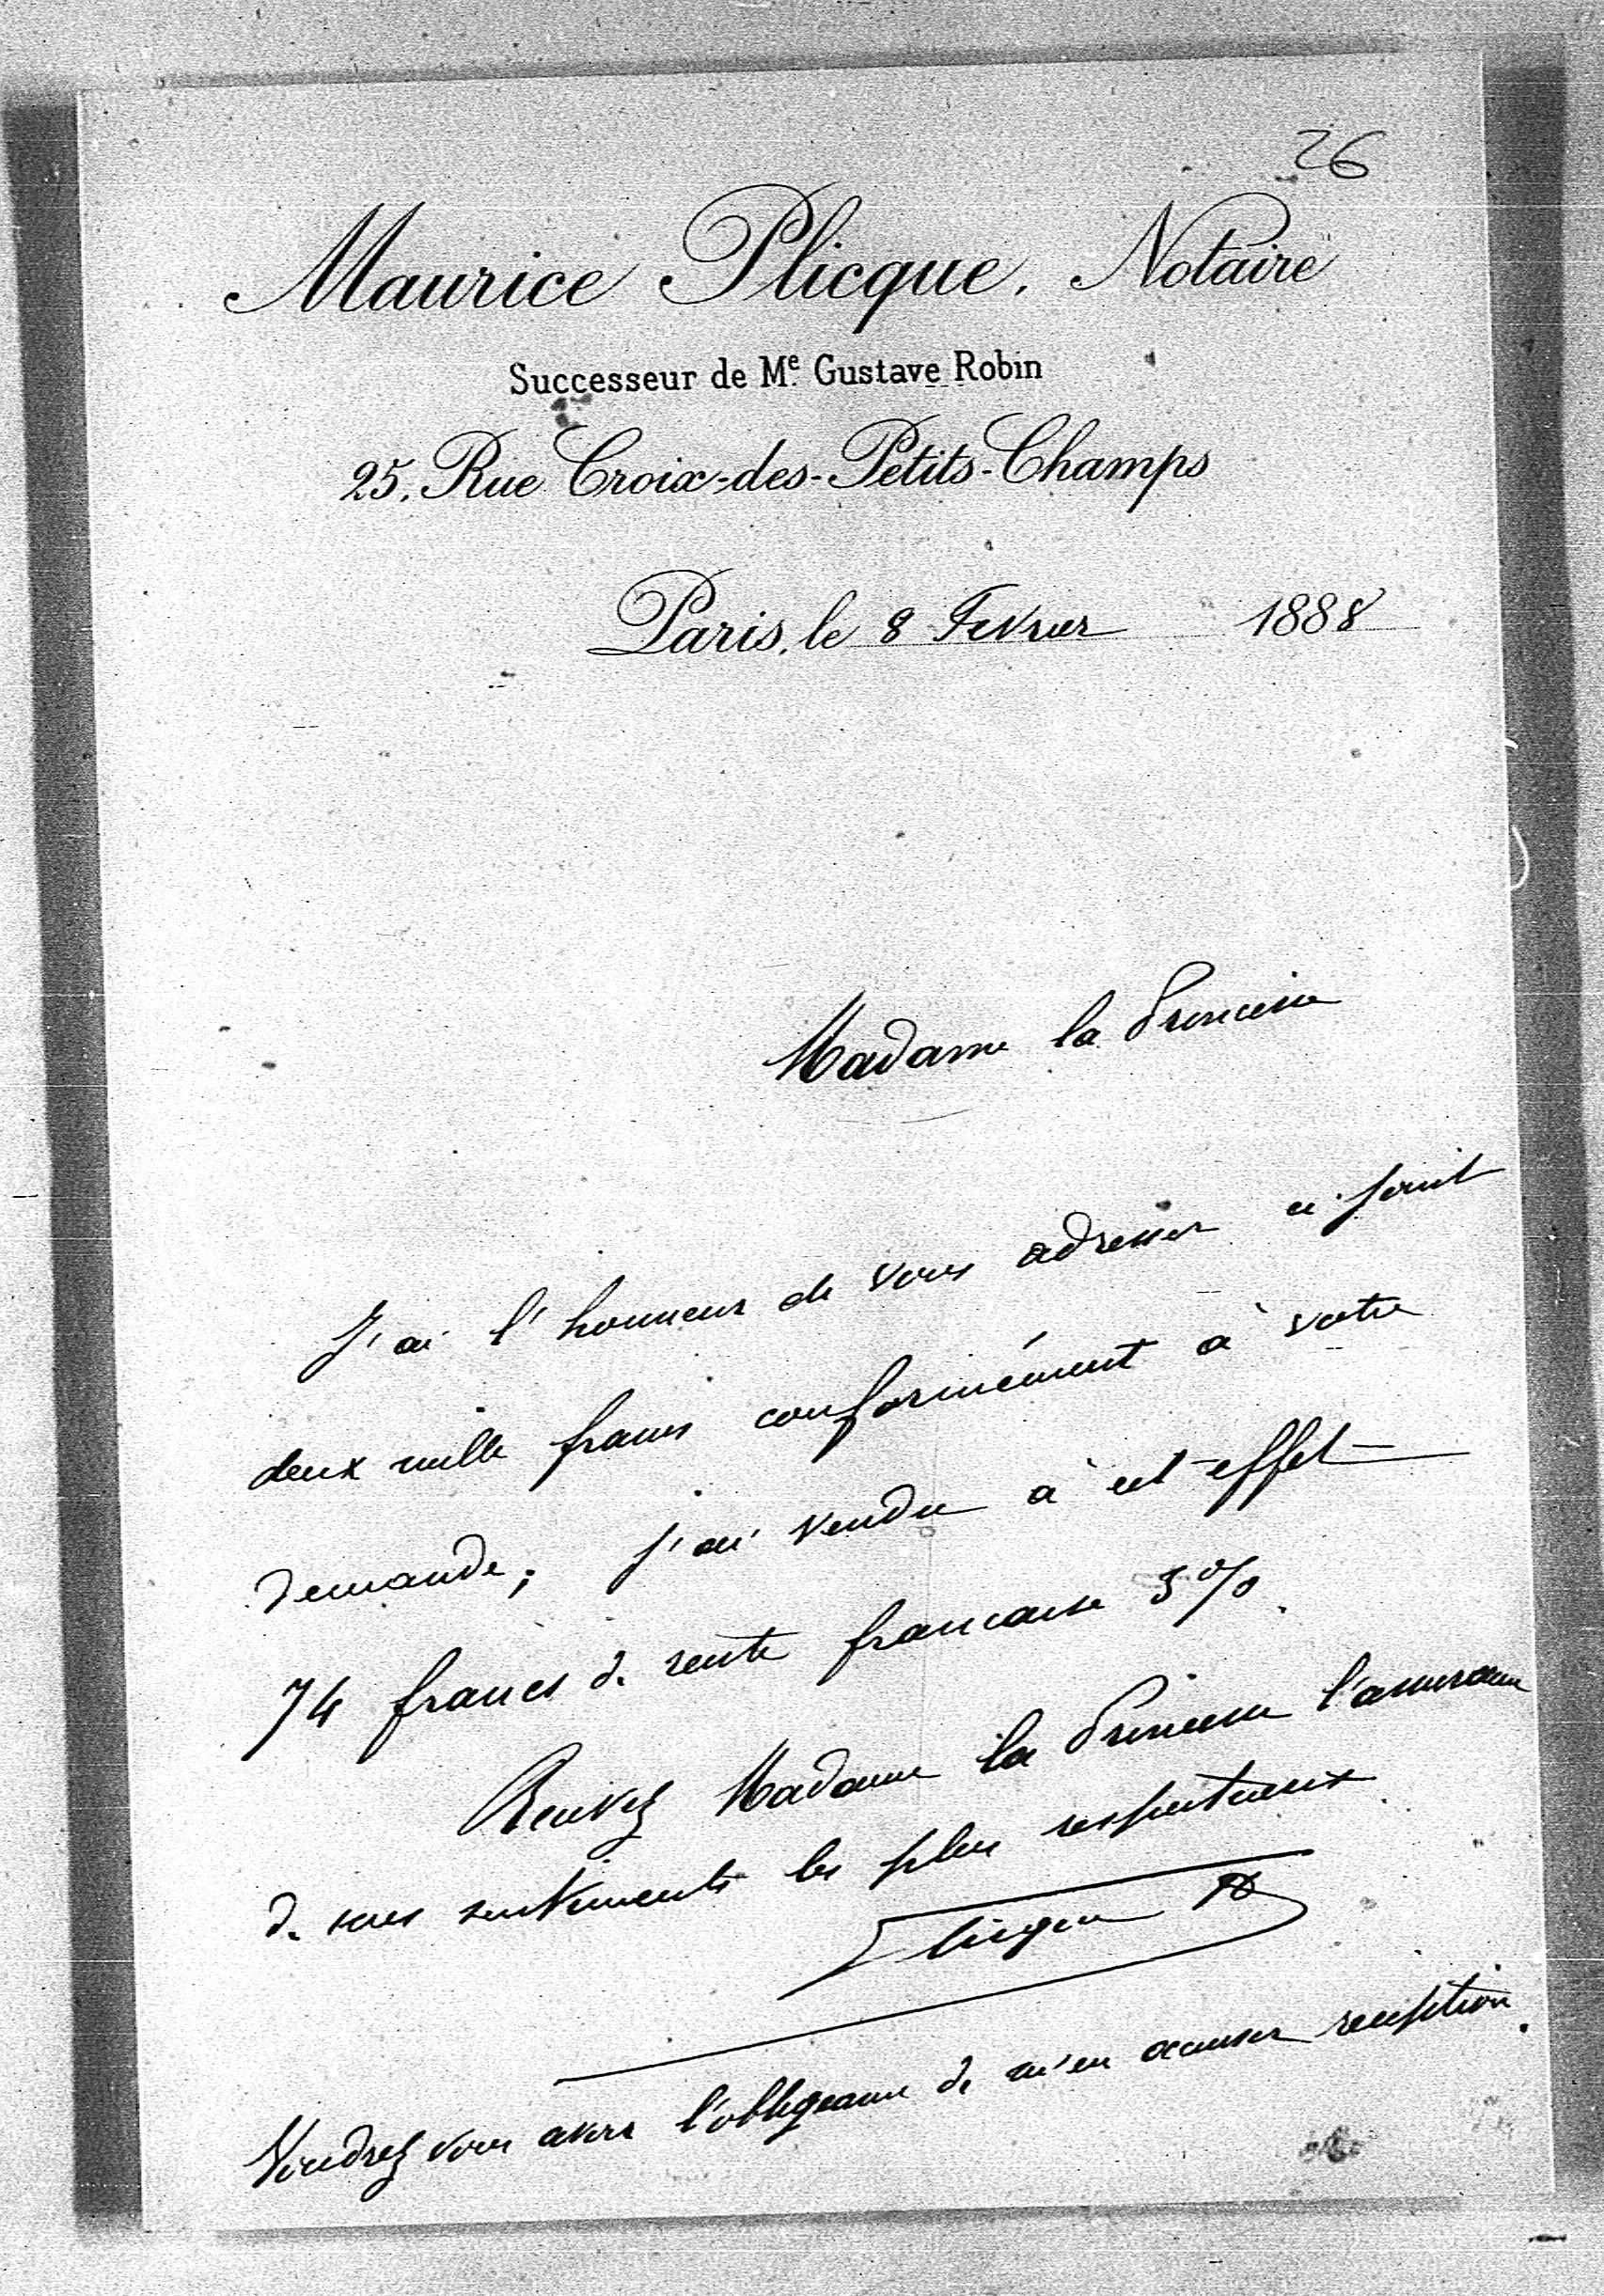 26
Maurice Plicque, Notaire
Successeur de Me. Gustave Robin
25, Rue Croix-des-Petits-Champs
Paris, le 8 Fevrier 1888
Madame la Princesse
J'ai l'honneur de vous adresser ci joint
deux mille francs conformément à votre
demande; j'ai vendu à cet effet
74 francs de rente francaise 3%.
Recevez Madame la Princesse l'assurance
de mes sentiments les plus respectueux
Voudrez vous avoir l'obligeance de m'en accuser reception.